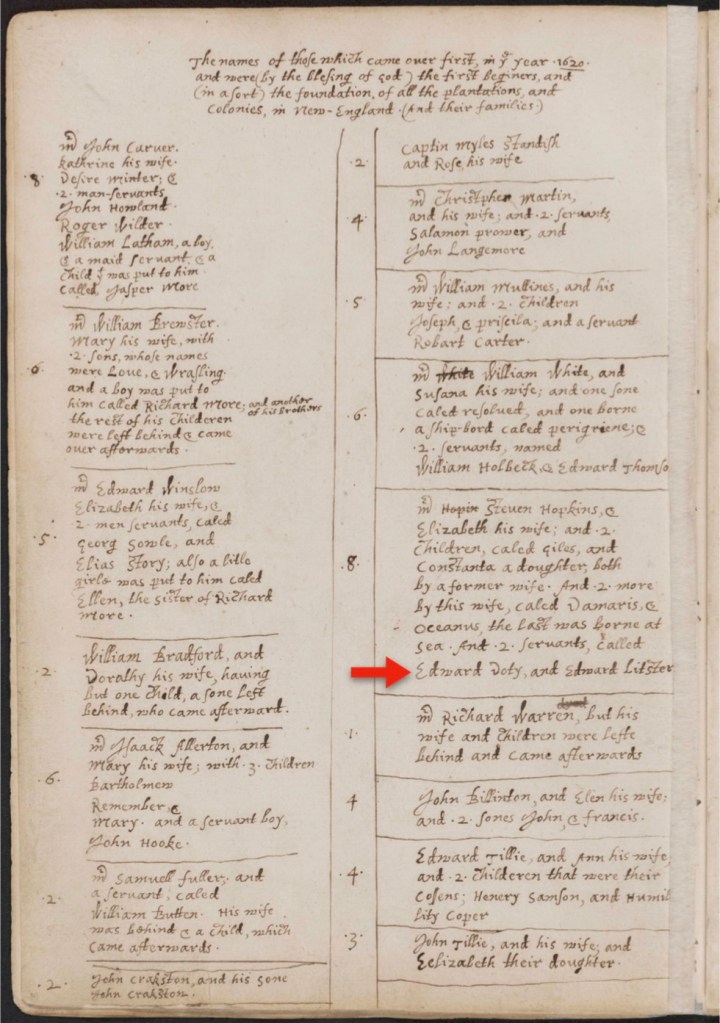 The names of those which came over first, in yᵉ year .1620.
and were (by the blesing of god) the first beginers, and
(in a sort) the foundation, of all the plantations, and
Colonies, in New-England. (And their families.)
.8.
mr John Carver.
Kathrine his wife.
Desire Minter; &
.2. man-servants
John Howland
Roger Wilder.
William Latham, a boy.
& a maid servant, & a
child yt was put to him
called, Jasper More
.6.
mr William Brewster.
Mary his wife, with
.2. sons, whose names
were Love, & Wrasling.
and a boy was put to
him called Richard More; and another
of his brothers
the rest of his Childeren
were left behind & came
over afterwards.
.5.
mr Edward Winslow
Elizabeth his wife, &
2. men servants, caled
Georg Sowle, and
Elias Story; also a litle
girle was put to him caled
Ellen, the sister of Richard
More.
.2.
William Bradford, and
Dorathy his wife, having
but one Child, a sone left
behind, who came afterward.
.6.
mr Isaack Allerton, and
Mary his wife; with .3. Children
Bartholmew
Remember, &
Mary. and a servant boy,
John Hooke.
.2.
mr Samuell fuller; and
a servant, caled
William Butten. His wife
was behind & a Child, which
came afterwards.
.2.
John Crakston, and his sone
John Crakston.
.2.
Captin Myles Standish
and Rose, his wife
.4.
mr Christpher Martin,
and his wife; and .2. servants,
Salamon prower, and
John Langemore
.5.
mr William Mullines, and his
wife; and .2. Children
Joseph, & priscila; and a servant
Robart Carter.
.6.
mr White William White, and
Susana his wife; and one sone
caled resolved, and one borne
a ship-bord caled perigriene; &
.2. servants, named
William Holbeck, & Edward Thomso
.8.
mr Hopin Steven Hopkins, &
Elizabeth his wife; and .2.
Children, caled Giles, and
Constanta a doughter, both
by a former wife. And .2. more
by this wife, caled Damaris, &
Oceanus, the last was borne at
sea. And .2. servants, called
Edward Doty, and Edward Litster
.1.
mr Richard Warren, but his
wife and Children were lefte
behind and came afterwards
4
John Billinton, and Elen his wife;
and .2. sones John, & francis.
.4.
Edward Tillie, and Ann his wife
and .2. Childeren that were their
Cosens; Henery Samson, and Humil
lity Coper
.3.
John Tillie, and his wife; and
Eelizabeth their doughter.